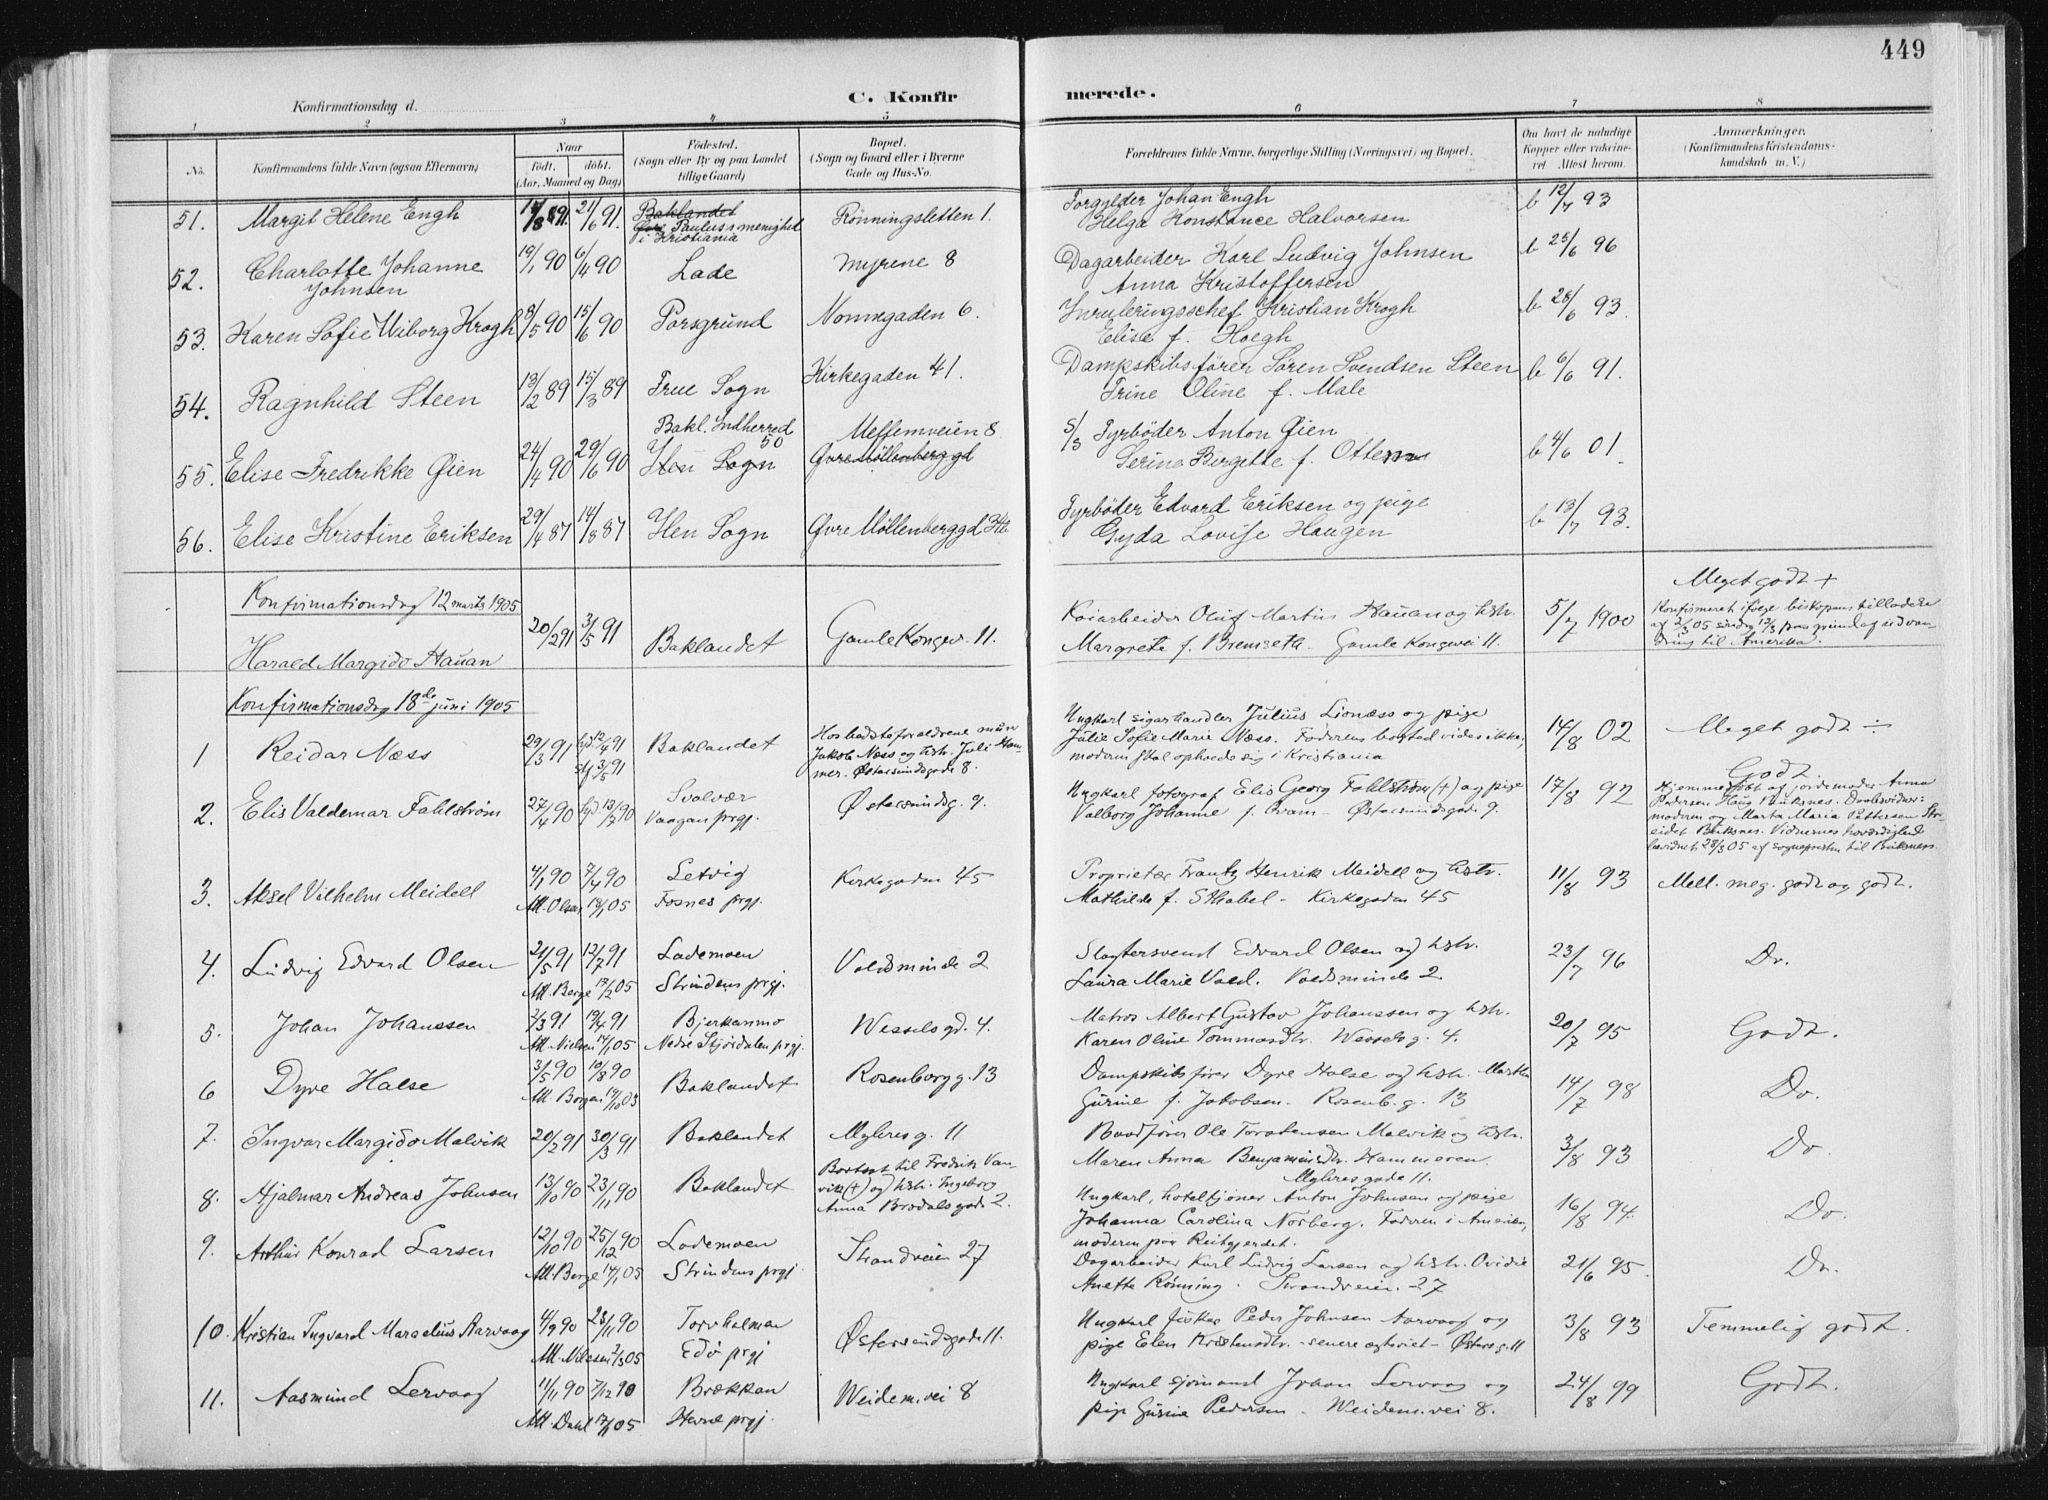 449
Konfirmationsdag d.
C. Konfirmerede.
1 2 3 4 5 6 7 8
No.
Konfirmandens fulde Navn (ogsaa Efternavn)
Naar
født. døbt.
(Aar, Maaned og Dag)
Fødested.
(Sogn eller By og paa Landet
tillige Gaard)
Bopæl.
(Sogn og Gaard eller i Byerne
Gade og Hus-No.
Forældrenes fulde Navne, borgerlige Stilling (Næringsvei) og Bopæl.
Om havt de naturlige
Kopper eller vaccine-
ret Attest herom.
Anmærkninger.
(Konfirmandens Kristendoms-
kundskab m. V.)
51. Margit Helene Engh 21/6 91. Baklandet Rönningsletten 1. Forgylder Johan Engh b 12/7 93
Paulus menighed Helga Konstance Halvorsen
i Kristiania
52. Charlotte Johanne 19/1 90 6/4 90 Lade Myrene 8 Dagarbeider Karl Ludvig Johnsen b 25/6 96
Johnsen Anna Kristoffersen
53. Karen Sofie Wiborg Krogh 8/5 90 15/6 90 Porsgrund Nonnegaden 6. Inruleringsschef Kristian Krogh b 28/6 93.
Elise f. Hoegh
54. Ragnhild Steen 13/2 89 15/3 89 Frue Sogn Kirkegaden 41. Dampskibsförer Sören Svendsen Steen b 6/6 91.
Trine Oline f. Male
Bakl. Indherred Mellemveien 8
50
55. Elise Fredrikke Øien 24/4 90 29/6 90 Hen Sogn Øvre Möllenberg gd 5/5 Fyrböder Anton Øien b 4/6 01.
Serine Birgitte f. Ottem
56. Elise Kristine Eriksen 29/4 87 14/8 87 Hen Sogn Øvre Möllenberggd Fyrböder Edvard Eriksen og pige b 13/7 93.
Gyda Lovise Haugen
Konfirmationsdag 12 marts 1905
Harald Margido Hauan 20/2 91 3/5 91 Baklandet Gamle Kongev. 11. Kaiarbeider Oluf Martin Hauan og hstr. 5/7 1900 Meget godt +
Margrete f. Bremseth. Gamle Kongevei 11. Konfirmeret ifølge biskopens tilladelse
af 2/3 05 søndag 12/3 paa grund af udvan-
dring til Amerika.
Konfirmationsdag 18de juni 1905
1 Reidar Næss 29/3 91 hjd 12/4 91 Baklandet Hos bedsteforældrene mur Ungkarl sigarhandler Julius Lionæss og pige 14/8 02 Meget godt ÷
stf 3/5 91 Jakob Næss og hstr. Juli Ham- Julie Sofie Marie Næss. Faderens bosted vides ikke,
mer. Østersundsgade 8. moderen skal opholde sig i Kristiania
2. Elis Valdemar Fahlstrøm 27/4 90 hjd 13/7 90 Svolvær Østersundsg. 9. Ungkarl fotograf Elis Georg Fahlstrøm (+) og pige 17/8 92 Godt
Vaagan prgj. Valborg Johanne f. Qvam - Østersundsgade 9. Hjemmedøbt af jordemoder Anna
Pedersen Haug Buksnes. Daabsvidner:
moderen og Marta Maria Pettersen
Buksnes. Vidnernes
bevidnet 28/3 05 af sognepresten til Buksnes.
3. Aksel Vilhelm Meidell 4/1 90 7/4 90 Setvig Kirkegaden 45 Proprietær Frantz Henrik Meidell og hstr. 11/8 93 Mell. meg. godt og godt.
Att. Olsen 18/1 05 Fosnes prgj. Mathilde f. Sthabel - Kirkegaden 45
4. Ludvig Edvard Olsen 21/5 91 12/7 91 Lademoen Voldsminde 2 Slagtersvend Edvard Olsen og hstr. 23/7 96 Do.
Att. Berge 17/2 05 Strindens prgj. Laura Marie Vold. Voldsminde 2.
5. Johan Johanssen 2/3 91 19/4 91 Bjerkanmo Wesselsgd. 4. Matros Albert Gustav Johanssen og hstr. 20/7 95 Godt.
Att. Nielsen 17/1 05 Nedre Stjørdalen prgj. Karen Oline Tommasdtr. Wesselsg. 4.
6 Dyre Halse 3/5 90 10/8 90 Baklandet Rosenborg g. 13 Dampskibsfører Dyre Halse og hstr. Martha 14/7 98 Do.
Att. Borgen 19/10 03 Gurine f. Jakobsen. Rosenb. g. 13
7. Ingvar Margido Malvik 20/2 91 30/3 91 Baklandet Mglresg. 11 Baadfører Ole Torstensen Malvik og hstr. 3/8 93 Do
Maren Anna Benjaminsdtr. Hammeren.
Mglresgade 11.
8. Hjalmar Andreas Johnsen 13/10 90 23/1 90 Baklandet Bortsat til Fredrik Van- Ungkarl, hoteltjener Anton Johnsen og pige 16/8 94. Do.
vik (+) og hstr. Ingeborg Johanna Carolina Norberg. Faderen i Amerika,
Anna Brodals gade 2. moderen paa Reitgjerdet.
9. Arthur Konrad Larsen 12/10 90 25/12 90 Lademoen Strandveien 27 Dagarbeider Karl Ludvig Larsen og hstr. Ovidie 21/6 95. Do.
Att. Berge 14/1 05 Strindens prgj. Anette Rønning. Strandveien 27
10. Kristian Ingvard Marselius Aarvaag 4/9 90 23/11 90 Torvholmen Østersundsgade 11. Ungkarl fisker Peder Johnsen Aarvaag og 3/8 93 Temmelig godt.
Att. Nilssen 2/3 05 Edø prgj pige Elen - senere ægteviet - Østersg. 11
11. Aasmund Lervaag 11/11 90 7/12 90 Brækkan Weidem. vei 8 Ungkarl sjømand Johan Lervaag og 24/8 99 Godt.
Att. Dahl 17/1 05 Hevne prgj. pige Gurine Pedersen. Weidem. vei 8.